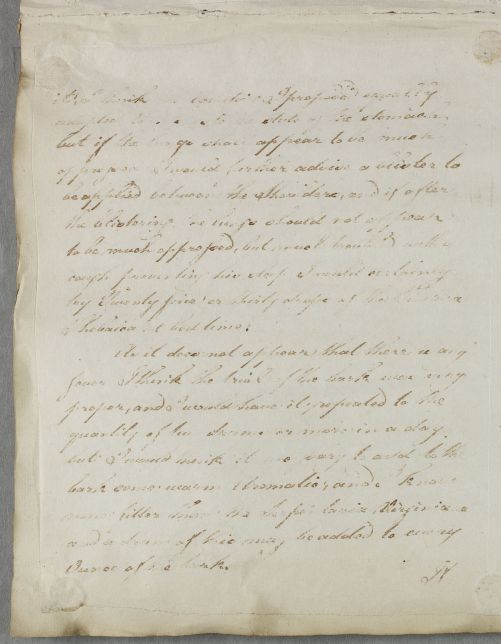 think
the state of the stomach
but if the lungs shall appear to be much
oppressed I would further advise a blister to
be applied between the shoulders, and if after
the blistering the lungs should not appear
to be much oppressed, but much troubled with a
cough preventing his sleep I would certainly
try Twenty five or thirty drops of the Tinctura
Thebaica at bed time.
As it does not appear that there is any
fever I think the trial of the bark was very
proper, and I would have it repeated to the
quantity of two drams or more in a day
but I would think it necessary to add to the
bark some warm Aromatic, and I know
none fitter than the Serpentaria Virginiana
and a dram of this may be added to every
Ounce of the bark.
If